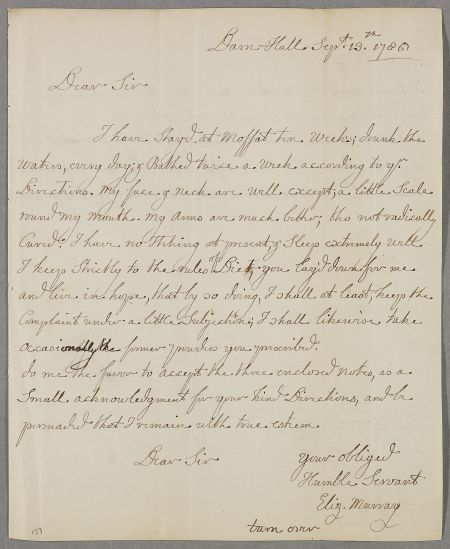 Darn-Hall Sept. 13.th 1786
Dear Sir
I have Stay'd at Moffat ten Weeks; drunk the
Waters, every day; & Bathed twice a Week according to yr.
Directions. My face & neck are well except, a little Scale
round my Mouth. My Arms are much better; tho not radically
Cured: I have no Itching at present, & Sleep extremely well
I keep Strictly to the rules of Diet, you lay'd down for me
and live in hope, that by so doing, I shall at least, keep the
Complaint under a little Subjection; I shall likewise take
occasionally the former powders you prescribed.
do me the favor to accept the three enclosed notes, as a
Small acknowledgment for your kind Directions, and be
persuaded that I remain with true esteem
Dear Sir
your obliged
Humble Servant
Eliz. Murray
turn over
137